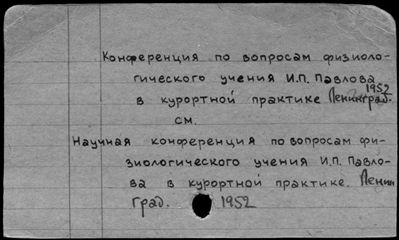 Конференция по вопросам физиоло-
гического учения И.П. Павлова
в курортной практике Ленинград. 1952
см.
Научная конференция по вопросам фи-
зиологического учения И.П. Павло-
ва в курортной практике. Ленин
град. 1952